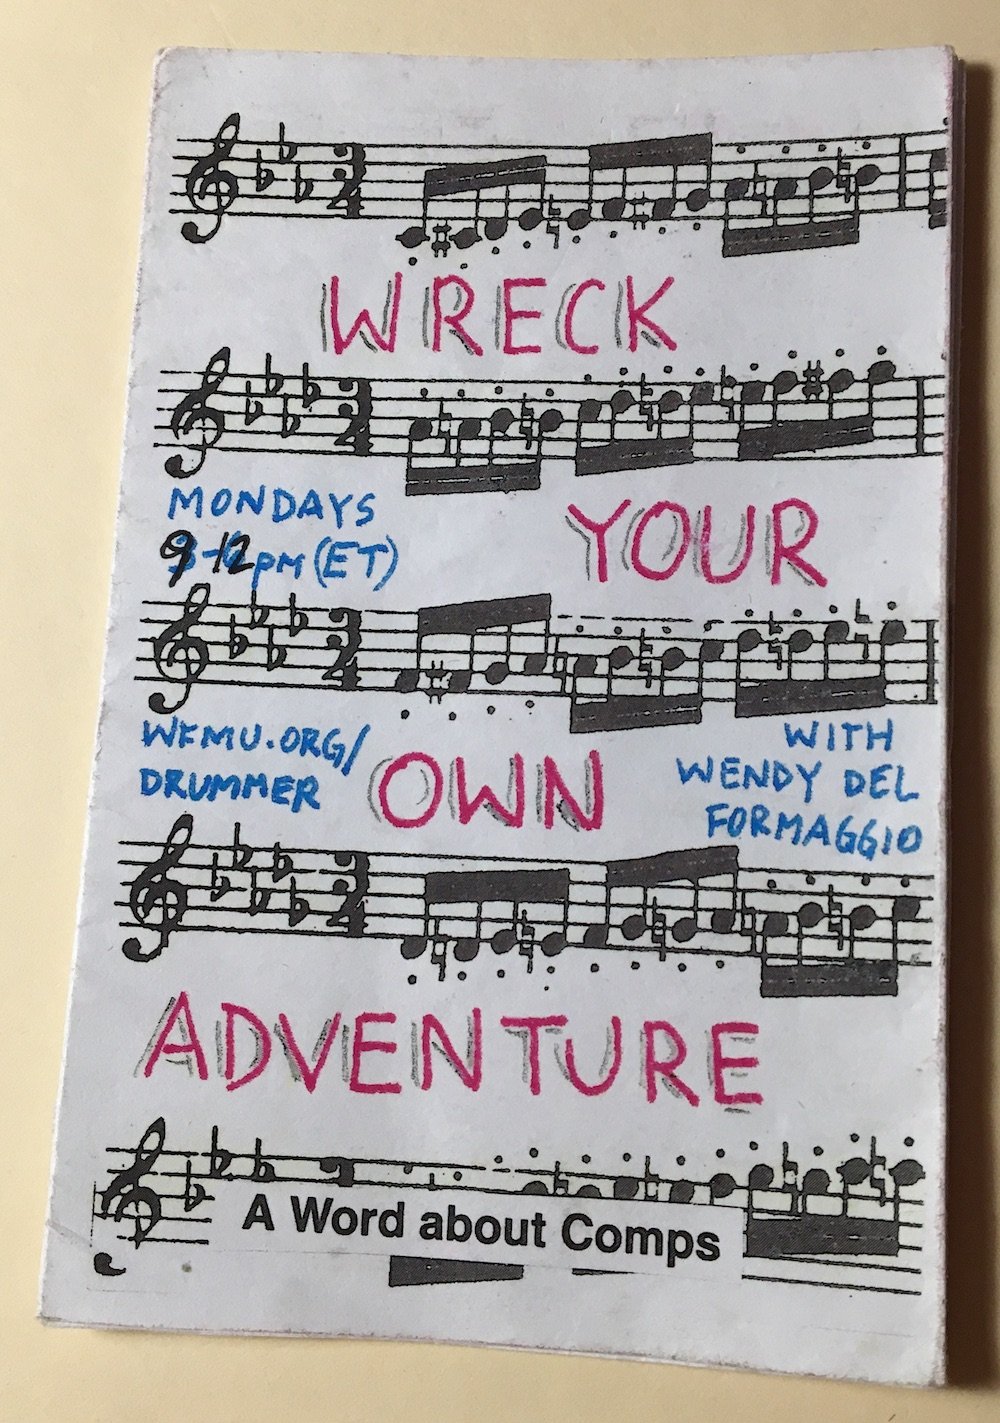 WRECK
MONDAYS
9-12pm (ET)
YOUR
WFMU.ORG/
DRUMMER
OWN
WITH
WENDY DEL
FORMAGGIO
ADVENTURE
A Word about Comps